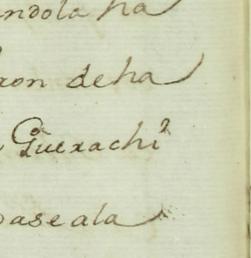 andola ha
ron deha
Guerachi
paseala